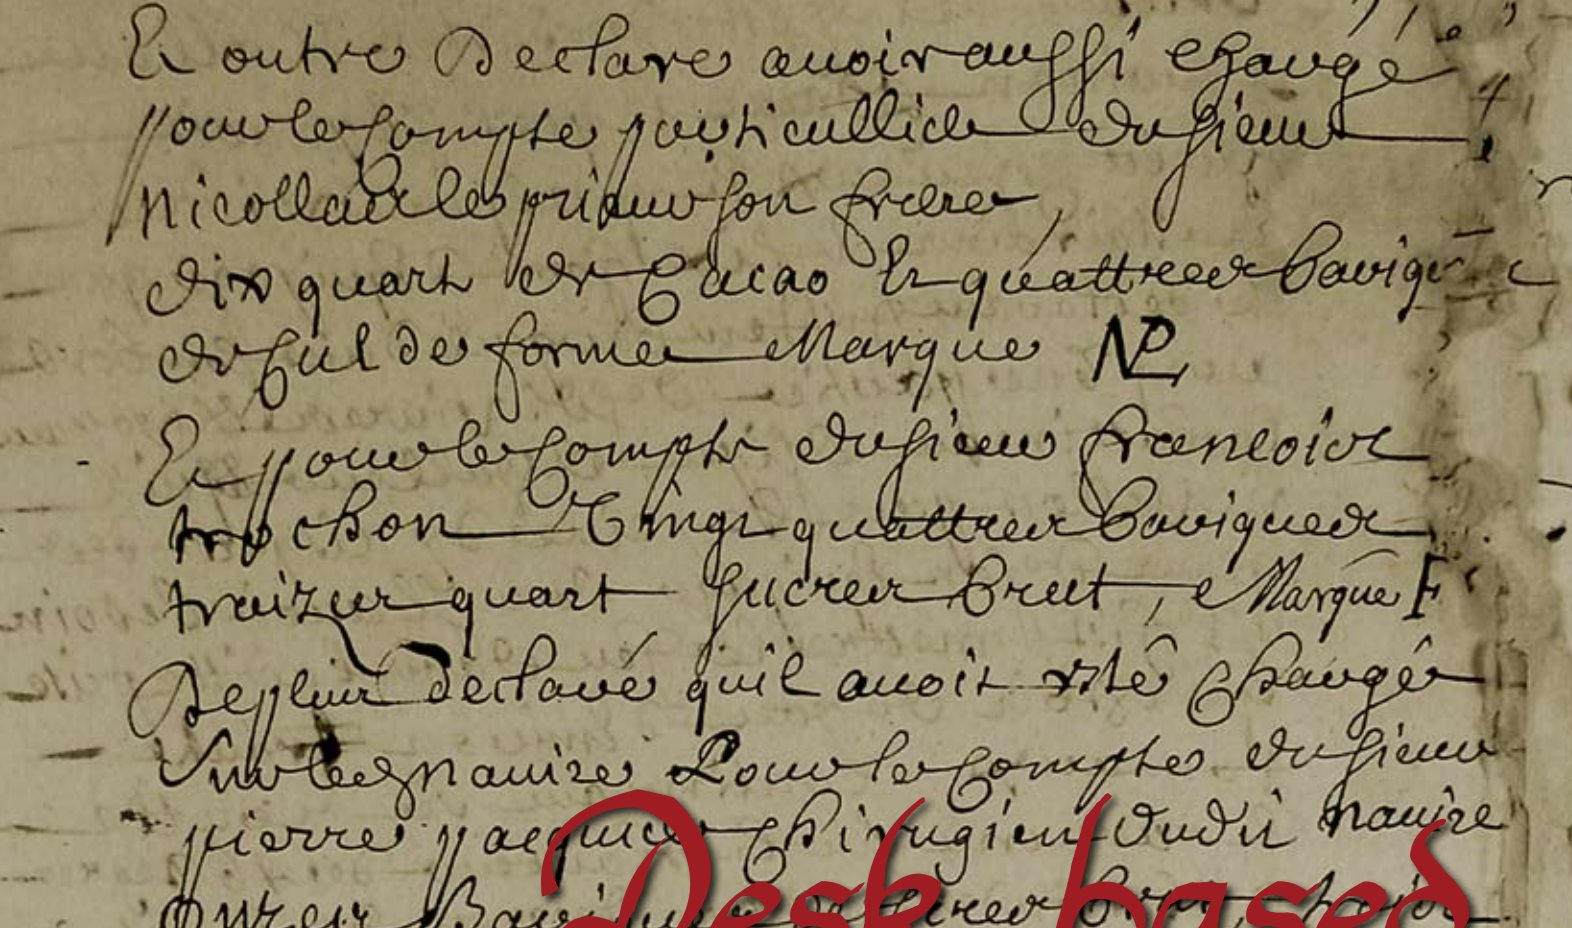 Et outre Declare auoir aussi chargé
pour le Compte particullier du sieur
Nicollas le prieur son frere,
dix quart de Cacao Et quattre barique
de Cul de forme Marque NP
Et pour le Compte du sieur francois
trochon Vingt quattre bariques
traize quart sucre brut, Marque F
De plus declaré quil auoit esté Chargé
Sur led navire Pour le Compte du sieur
pierre Chirugien dudit navire
onze sucre brut,
Desk based